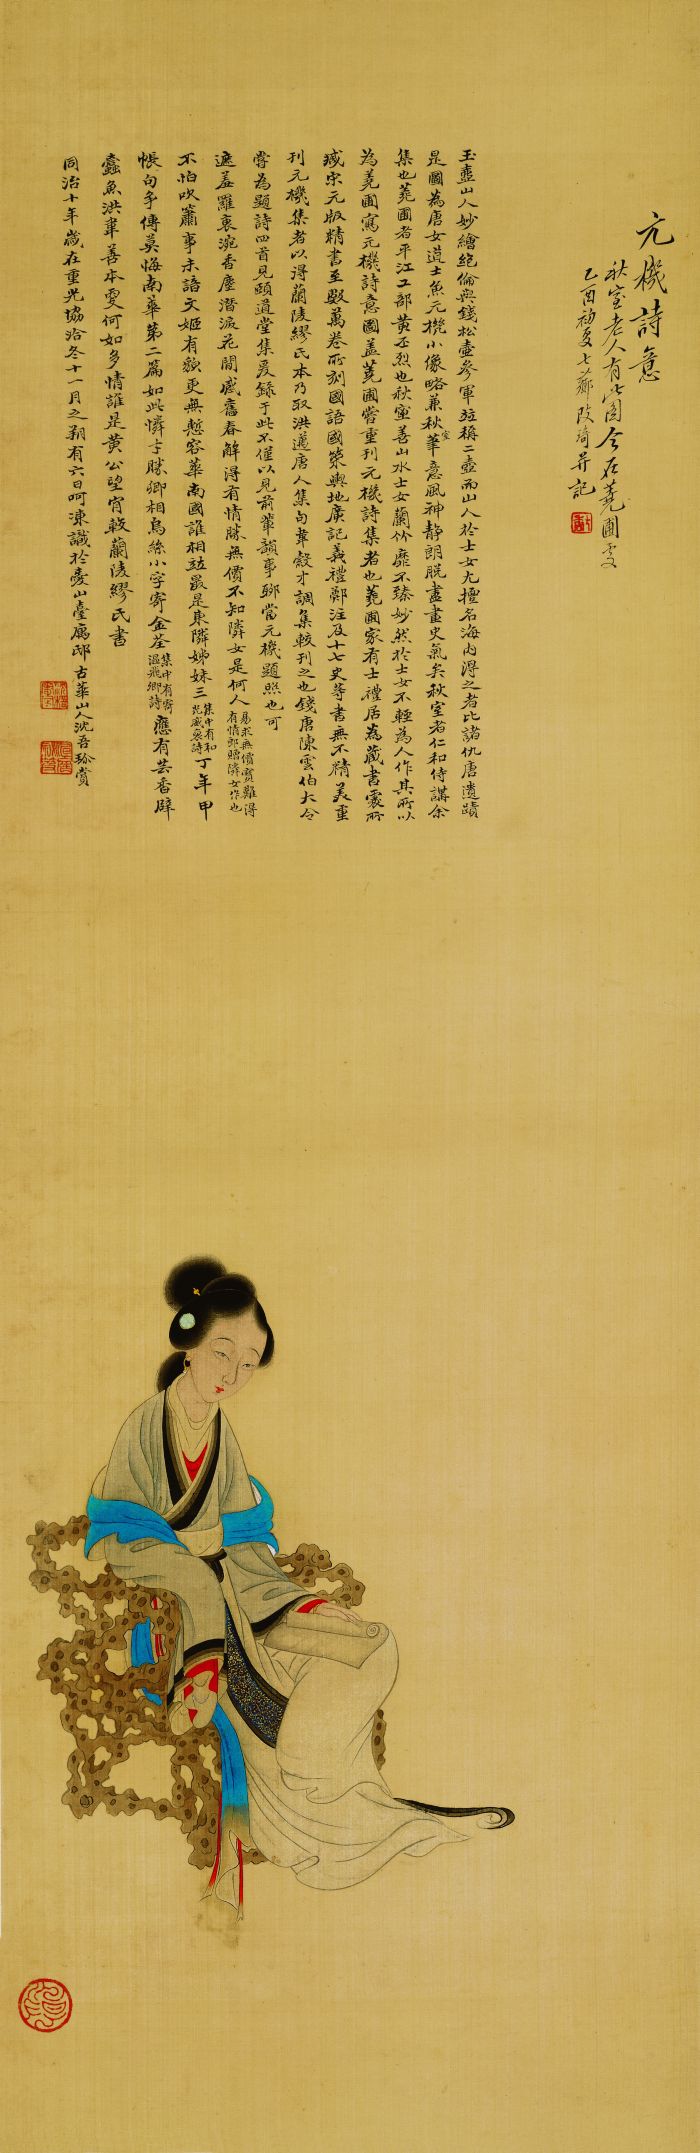 元機詩意
秋室老人有此圖今在蕘圃處
乙酉初夏七薌改琦并記
玉壺山人妙繪絕倫與錢松壺參軍竝稱二壺而山人於士女尤擅名海內得之者比諸仇唐遺蹟
是圖為唐女道士魚元機小像略兼秋室華意風神静朗脱盡畫史氣矣秋室者仁和侍講余
集也蕘圃者平江工部黄丕烈也秋室善山水士女蘭竹靡不臻妙然於士女不輕為人作其所以
為蕘圃寫元機詩意圖蓋蕘圃嘗重刊元機詩集者也蕘圃家有士禮居為藏書處所
臧宋元版精書至數萬卷所刻國語國策輿地廣記義禮鄭注及十七史等書無不精美重
刊元機集者以得蘭陵繆氏本乃取洪邁唐人集句韋縠才調集較刊之也錢唐陳雲伯大令
嘗為題詩四首見頤道堂集爰録于此不僅以見前輩韻事聊當元機題照也可
遮羞羅裏涴香塵潛淚花間感舊春解得有情勝無價不知隣女是何人易求無價寶難得有情郎贈隣女作也
不怕吹簫事未諧文姬有貌更無慙容華南國誰相竝最是東隣姊妹三集中有和光威裒詩丁年甲
帳句争傳莫悔南華第二篇如此憐才勝卿相烏絲小字寄金荃集中有寄温飛卿詩應有芸香辟
蠹魚洪韋善本更何如多情誰是黄公望宵較蘭陵繆氏書
同治十年歲在重光協洽冬十一月之朔有六日呵凍識於臺廨邸古華山人沈吾珍賞